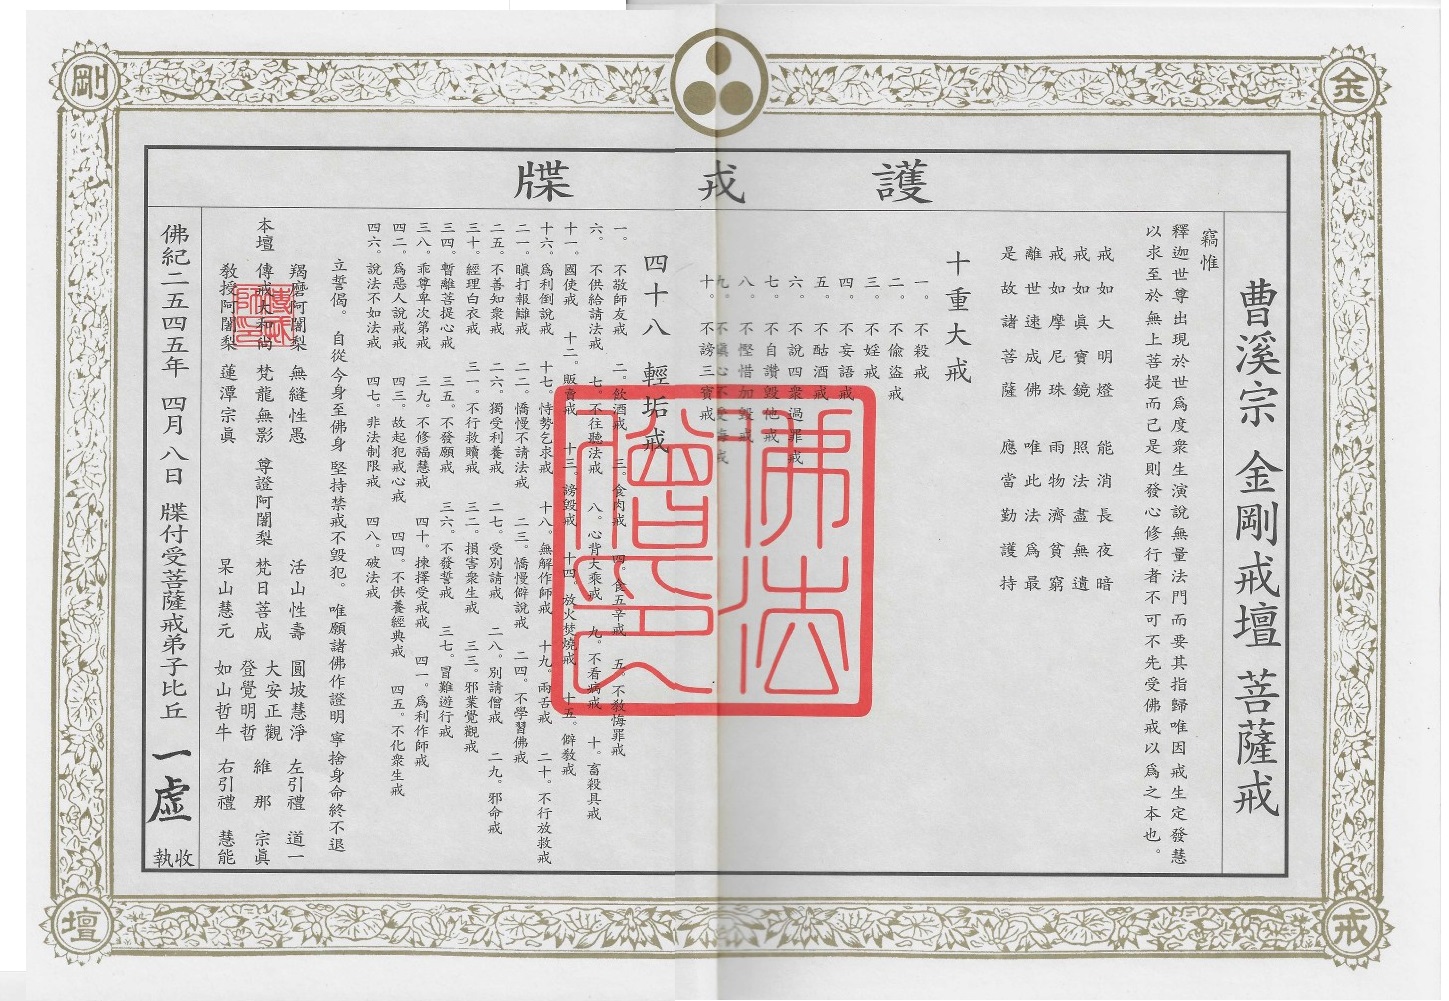 金
剛
戒
壇
護戒牒
曹溪宗 金剛戒壇 菩薩戒
竊惟
釋迦世尊出現於世爲度衆生演說無量法門而要其指歸唯因戒生定發慧
以求至於無上菩提而已是則發心修行者不可不先受佛戒以爲之本也。
戒如大明燈 能消長夜暗
戒如眞寶鏡 照法盡無遺
戒如摩尼珠 雨物濟貧窮
離世速成佛 唯此法爲最
是故諸菩薩 應當勤護持
十重大戒
一. 不殺戒
二. 不偸盜戒
三. 不婬戒
四. 不妄語戒
五. 不酤酒戒
六. 不說四衆過罪戒
七. 不自讚毁他戒
八. 不慳惜加毁戒
九. 不瞋心不受悔戒
十. 不謗三寶戒
四十八 輕垢戒
一. 不敬師友戒 二. 飮酒戒 三. 食肉戒 四. 食五辛戒 五. 不敎悔罪戒
六. 不供給請法戒 七. 不往聽法戒 八. 心背大乘戒 九. 不看病戒 十. 畜殺具戒
十一. 國使戒 十二. 販賣戒 十三. 謗毁戒 十四. 放火焚燒戒 十五. 僻敎戒
十六. 爲利倒說戒 十七. 恃勢乞求戒 十八. 無解作師戒 十九. 兩舌戒 二十. 不行放救戒
二一. 瞋打報讎戒 二二. 憍慢不請法戒 二三. 憍慢僻說戒 二四. 不學習佛戒
二五. 不善知衆戒 二六. 獨受利養戒 二七. 受別請戒 二八. 別請僧戒 二九. 邪命戒
三十. 經理白衣戒 三一. 不行救贖戒 三二. 損害衆生戒 三三. 邪業覺觀戒
三四. 暫離菩提心戒 三五. 不發願戒 三六. 不發誓戒 三七. 冒難遊行戒
三八. 乖尊卑次第戒 三九. 不修福慧戒 四十. 揀擇受戒戒 四一. 爲利作師戒
四二. 爲惡人說戒戒 四三. 故起犯戒心戒 四四. 不供養經典戒 四五. 不化衆生戒
四六. 說法不如法戒 四七. 非法制限戒 四八. 破法戒
立誓偈. 自從今身至佛身 堅持禁戒不毁犯. 唯願諸佛作證明 寧捨身命終不退
羯磨阿闍梨 無縫性愚 活山性壽 圓坡慧淨 左引禮 道一
本壇 傳戒大和尙 梵龍無影 尊證阿闍梨 梵日菩成 大安正觀 維那 宗眞
登覺明哲
敎授阿闍梨 蓮潭宗眞 杲山慧元 如山哲牛 右引禮 慧能
佛紀二五四五年 四月八日 牒付受菩薩戒弟子比丘 一虛 收執
佛法僧寶